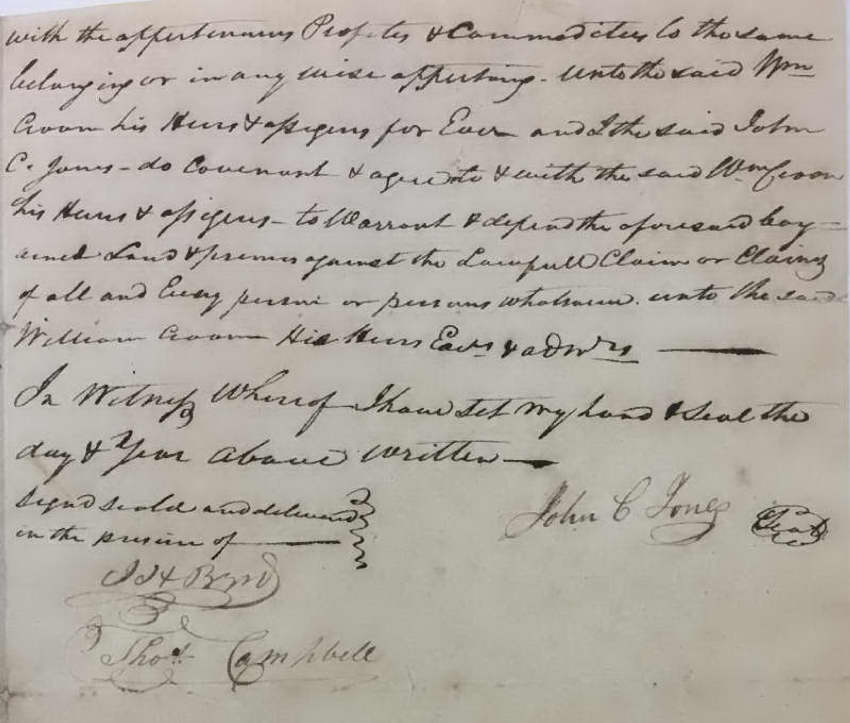 with the appertinuns Profites & Commodities to the same
belonging or in any wise appertaing. unto the said Wm
Croom his Heirs & assigens for Ever and I the said John
C. Jones - do Covenant & agree to & with the said Wm Croom
his Heirs & assigens - to Warrant & defend the aforesaid bay-
ained Land & premes against the Lawfull Claim or Claims
of all and Every person or persons whatsoever. unto the said
William Croom His Heirs Exrs & admrs
In Witness Whereof I have set my hand & Seal the
day & Year above written
Signd Seald and deliverd
in the presenc of
John C Jones Seal
Byrd
Thos Campbell